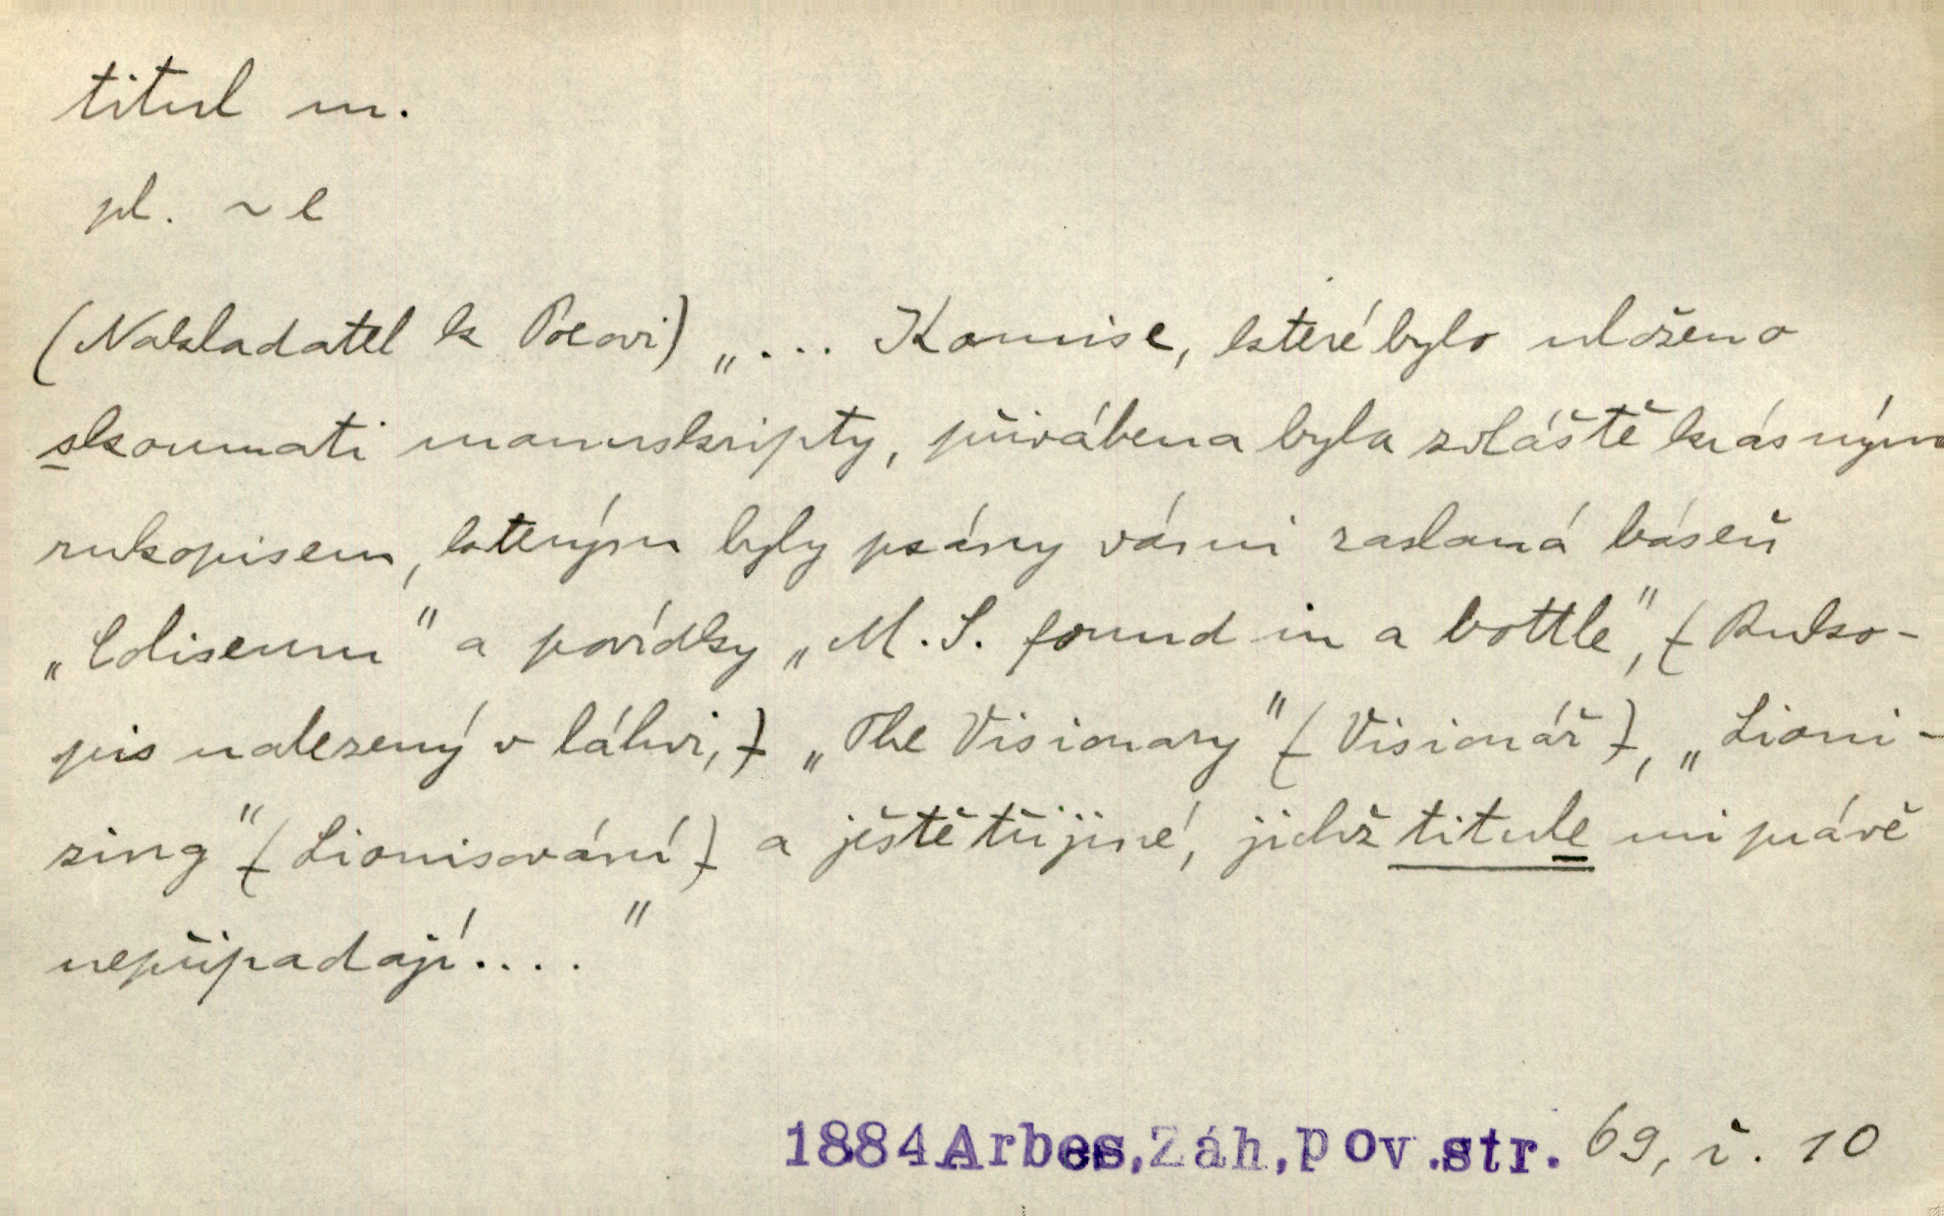 titul m.
pl. ~ e
(Nakladatel k Poeovi) „... Komise, které bylo uloženo
skoumati manuskripty, přivábena byla zvláště krásným
rukopisem, kterým byly psány vámi zaslaná báseň
„Coliseum" a povídky „M. S. found in a bottle", (Ruko-
pis nalezený v láhvi,) „The Visionary" (Visionář), „Lioni-
zing" (Lionisování) a ještě tři jiné, jichž titule mi právě
nepřipadají...."
1884 Arbes, Záh, pov. str. 69, ř. 10